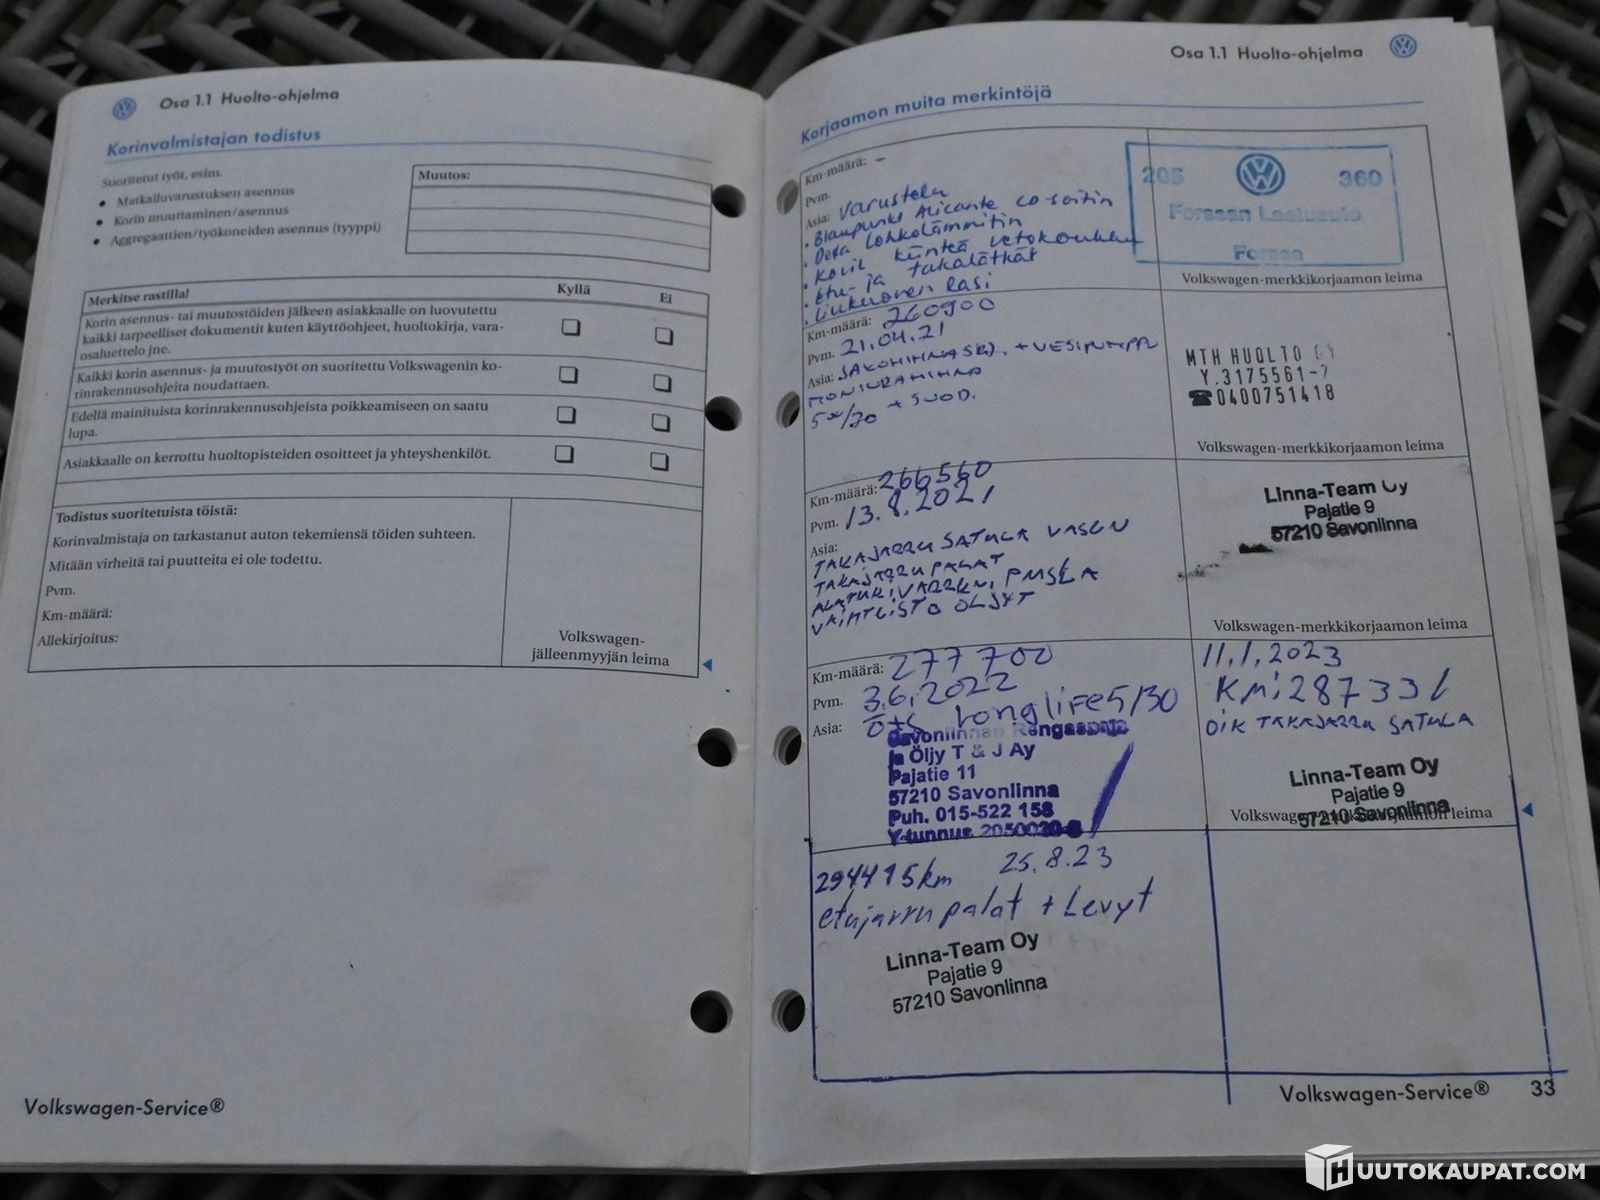 Osa 1.1 Huolto-ohjelma
Korinvalmistajan todistus
Suoritetut työt, esim.
• Matkailuvarustuksen asennus
• Korin muuttaminen/asennus
• Aggregaattien/työkoneiden asennus (tyyppi)
Muutos:
Merkitse rastilla!
Kyllä
Ei
Korin asennus- tai muutostöiden jälkeen asiakkaalle on luovutettu
kaikki tarpeelliset dokumentit kuten käyttöohjeet, huoltokirja, vara-
osaluettelo jne.
Kaikki korin asennus- ja muutostyöt on suoritettu Volkswagenin ko-
rinrakennusohjeita noudattaen.
Edellä mainituista korinrakennusohjeista poikkeamiseen on saatu
lupa.
Asiakkaalle on kerrottu huoltopisteiden osoitteet ja yhteyshenkilöt.
Todistus suoritetuista töistä:
Korinvalmistaja on tarkastanut auton tekemiensä töiden suhteen.
Mitään virheitä tai puutteita ei ole todettu.
Pvm.
Km-määrä:
Allekirjoitus:
Volkswagen-
jälleenmyyjän leima
Volkswagen-Service®
Osa 1.1 Huolto-ohjelma
Korjaamon muita merkintöjä
Km-määrä: -
Pvm.
Asia: Varustelu
• Blaupunkt Alicante CD-soitin
• Defa lohkolämmitin
• kovil kiinteä vetokoukku
• Etu- ja takalätkät
• Liukuoven lasi
205 360
Forssan Laatuauto
Forssa
Volkswagen-merkkikorjaamon leima
Km-määrä: 260900
Pvm. 21.04.21
Asia: JAKOHIHNASRJ. + VESIPUMPPU
MONIURAHIHNA
5w/30 + SUOD.
MTH HUOLTO OY
Y.3175561-7
☎0400751418
Volkswagen-merkkikorjaamon leima
Km-määrä: 266560
Pvm. 13.8.2021
Asia:
TAKAJARRU SATULA VASEN
TAKAJARRU PALAT
ALATUKIVARREN PUSLA
VAIHTEISTO ÖLJYT
Linna-Team Oy
Pajatie 9
57210 Savonlinna
Volkswagen-merkkikorjaamon leima
Km-määrä: 277700
Pvm. 3.6.2022
Asia: Ö+S longlife 5/30
Savonlinnan Rengaspaja
ja Öljy T & J Ay
Pajatie 11
57210 Savonlinna
Puh. 015-522 158
Y-tunnus 2050020-8
11.1.2023
Km: 287331
OIK TAKAJARRU SATULA
Linna-Team Oy
Pajatie 9
57210 Savonlinna
Volkswagen-merkkikorjaamon leima
294415km 25.8.23
etujarrupalat + Levyt
Linna-Team Oy
Pajatie 9
57210 Savonlinna
Volkswagen-Service® 33
HUUTOKAUPAT.COM